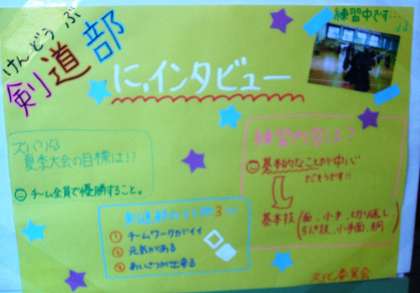 けんどうぶ
剣道部
に、インタビュー
練習中です…
ズバリ!
夏季大会の目標は!?
チーム全員で優勝すること。
練習内容は?
基本的なことが中心
だそうです!!
基本技(面、小手、切り返し
剣道部の 3
① チームワークがイイ
② 元気がある
③ あいさつが出来る
委員会